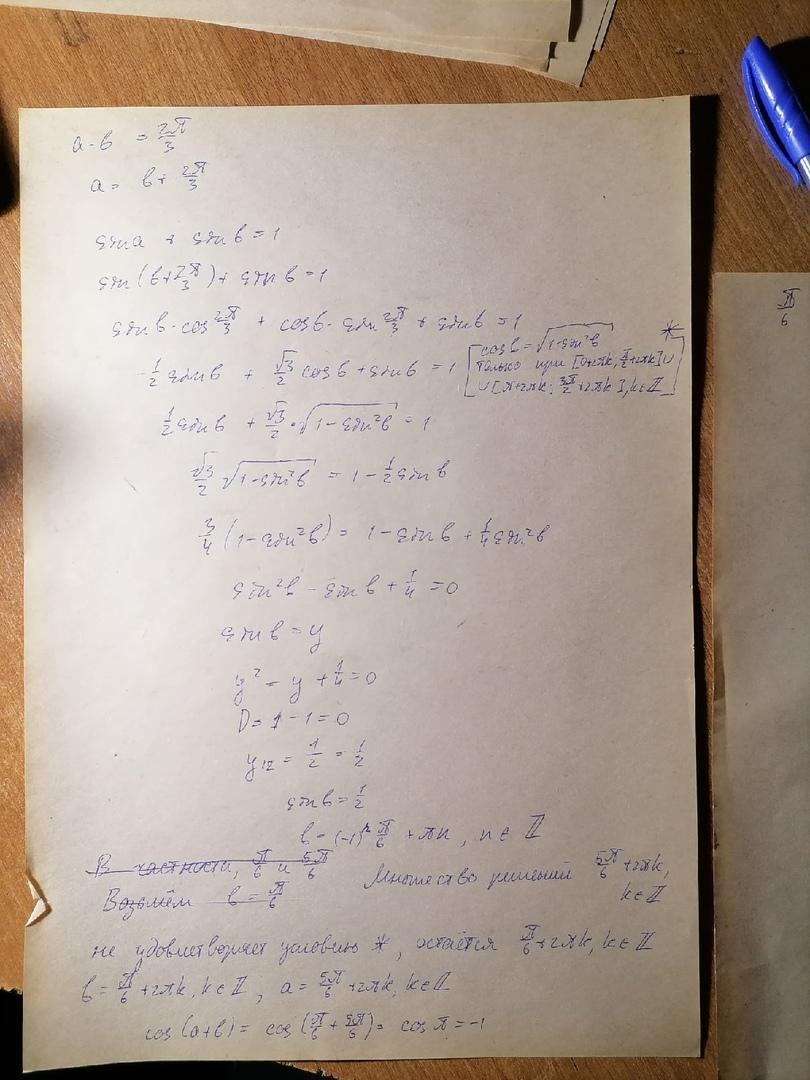 a - b = 2π/3
a = b + 2π/3
π/6
sin a + sin b = 1
sin(b + 2π/3) + sin b = 1
sin b · cos 2π/3 + cos b · sin 2π/3 + sin b = 1
-1/2 sin b + √3/2 cos b + sin b = 1
[cos b = √(1 - sin²b) *
только при [0+2πk, π/2+2πk] ∪
∪ [π+2πk; 3π/2+2πk], k ∈ ℤ]
1/2 sin b + √3/2 · √(1 - sin²b) = 1
√3/2 √(1 - sin²b) = 1 - 1/2 sin b
3/4 (1 - sin²b) = 1 - sin b + 1/4 sin²b
sin²b - sin b + 1/4 = 0
sin b = y
y² - y + 1/4 = 0
D = 1 - 1 = 0
y₁₂ = 1/2 = 1/2
sin b = 1/2
b = (-1)ⁿ π/6 + πn, n ∈ ℤ
В частности, π/6 и 5π/6
Возьмём b = π/6
Множество решений 5π/6 + 2πk,
k ∈ ℤ
не удовлетворяет условию *, остаётся π/6 + 2πk, k ∈ ℤ
b = π/6 + 2πk, k ∈ ℤ, a = 5π/6 + 2πk, k ∈ ℤ
cos(a + b) = cos(π/6 + 5π/6) = cos π = -1